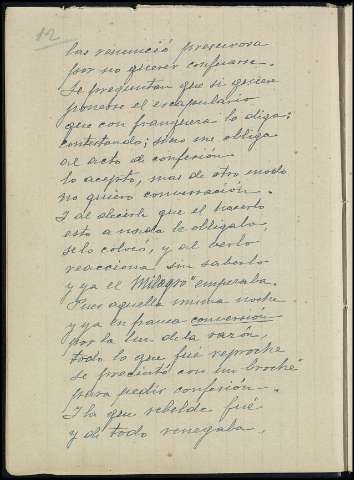 12
las renunció presurosa
por no querer confesarse.
Se preguntan que si quiere
ponerse el escapulario
que con franqueza lo diga;
contestando; sino me obliga
al acto de confesión
lo acepto, mas de otro modo
no quiero conversación.
I al decirle que el hacerlo
esto a nada le obligaba,
se lo colocó, y al verlo
reacciona sin saberlo
y ya el "Milagro" emperaba.
Pues aquella misma noche
y ya en franca conversion
por la luz de la razón,
todo lo que fué reproche
se precintó con un broche
para pedir confesión.
I la que rebelde fué
y de todo renegaba,